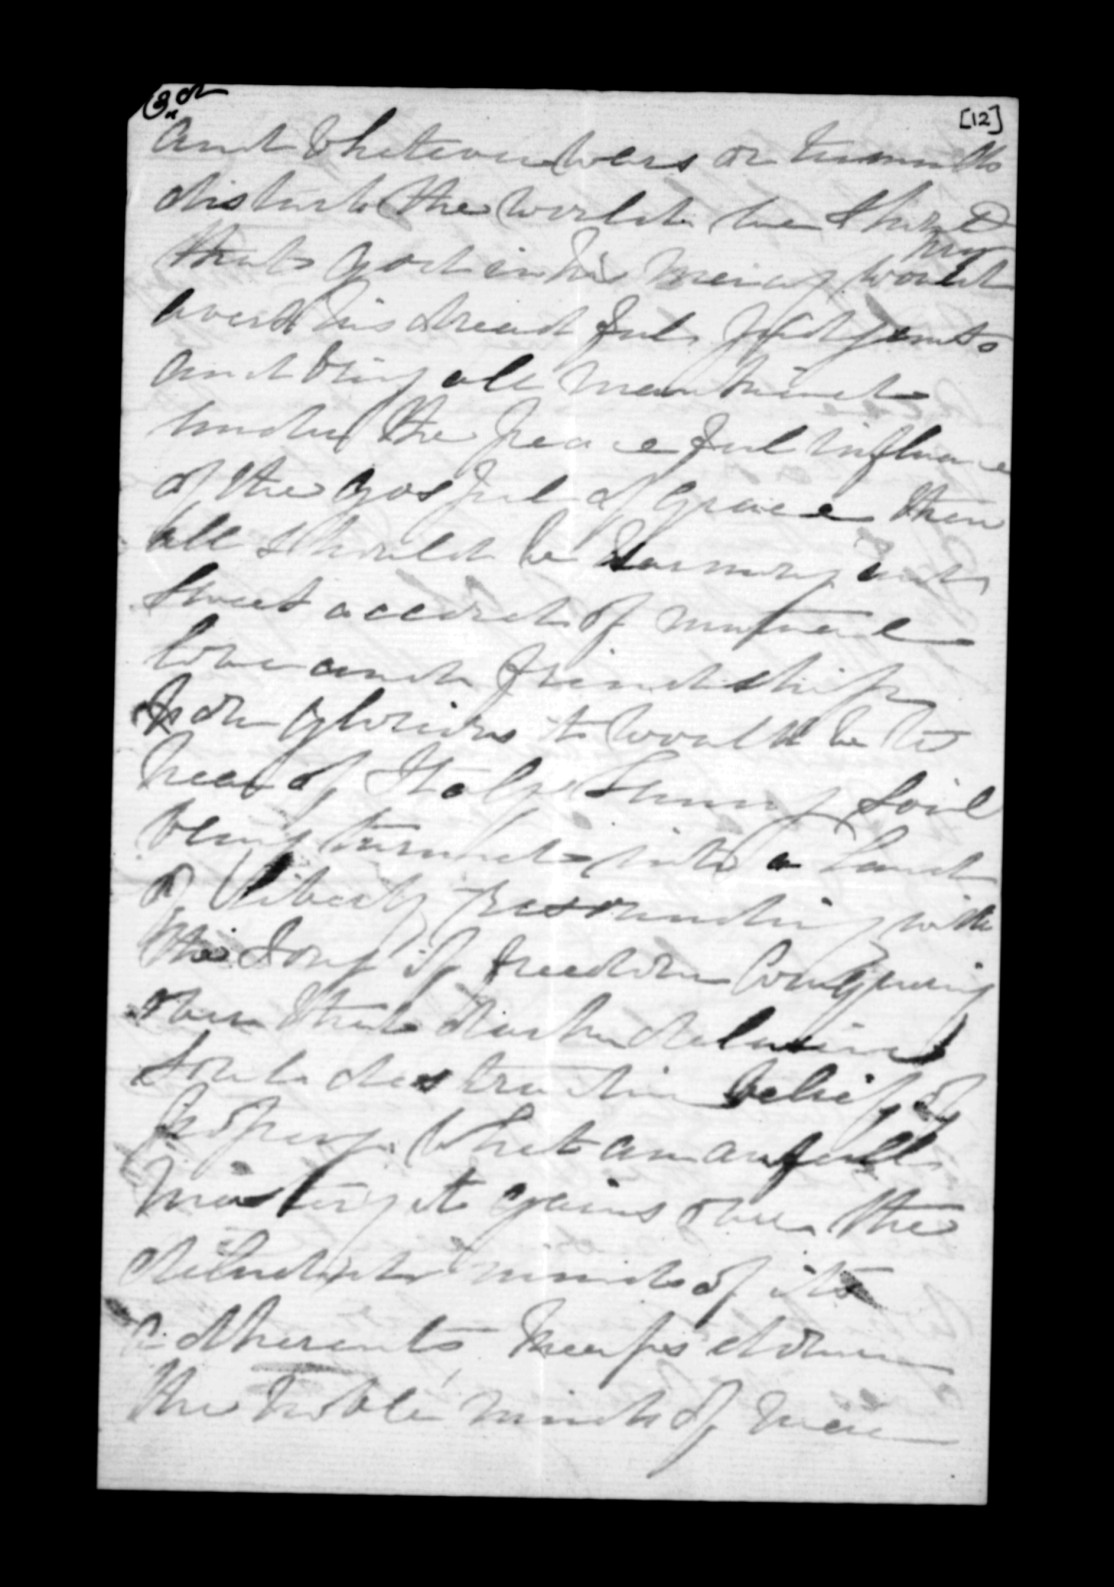 3d [12]
and Whatever Wars or tumults
disturb the World we should
pray
that God in his mercy would
avert his dreadful Judgments
and bring all mankind
under the peaceful influence
of the Gospel of Grace then
all should be harmony and
sweet accord of mutual
love and friendship
how glorious t would be to
hear of Italy Sunny Soil
being turned into a land
o Liberty Resounding with
the song of freedom Conquering
over that dark delusive
Soul destructive belief of
popery What an awfull
mastery it gains over the
deluded minds of its
adherents keeps down
the Noble minds of men